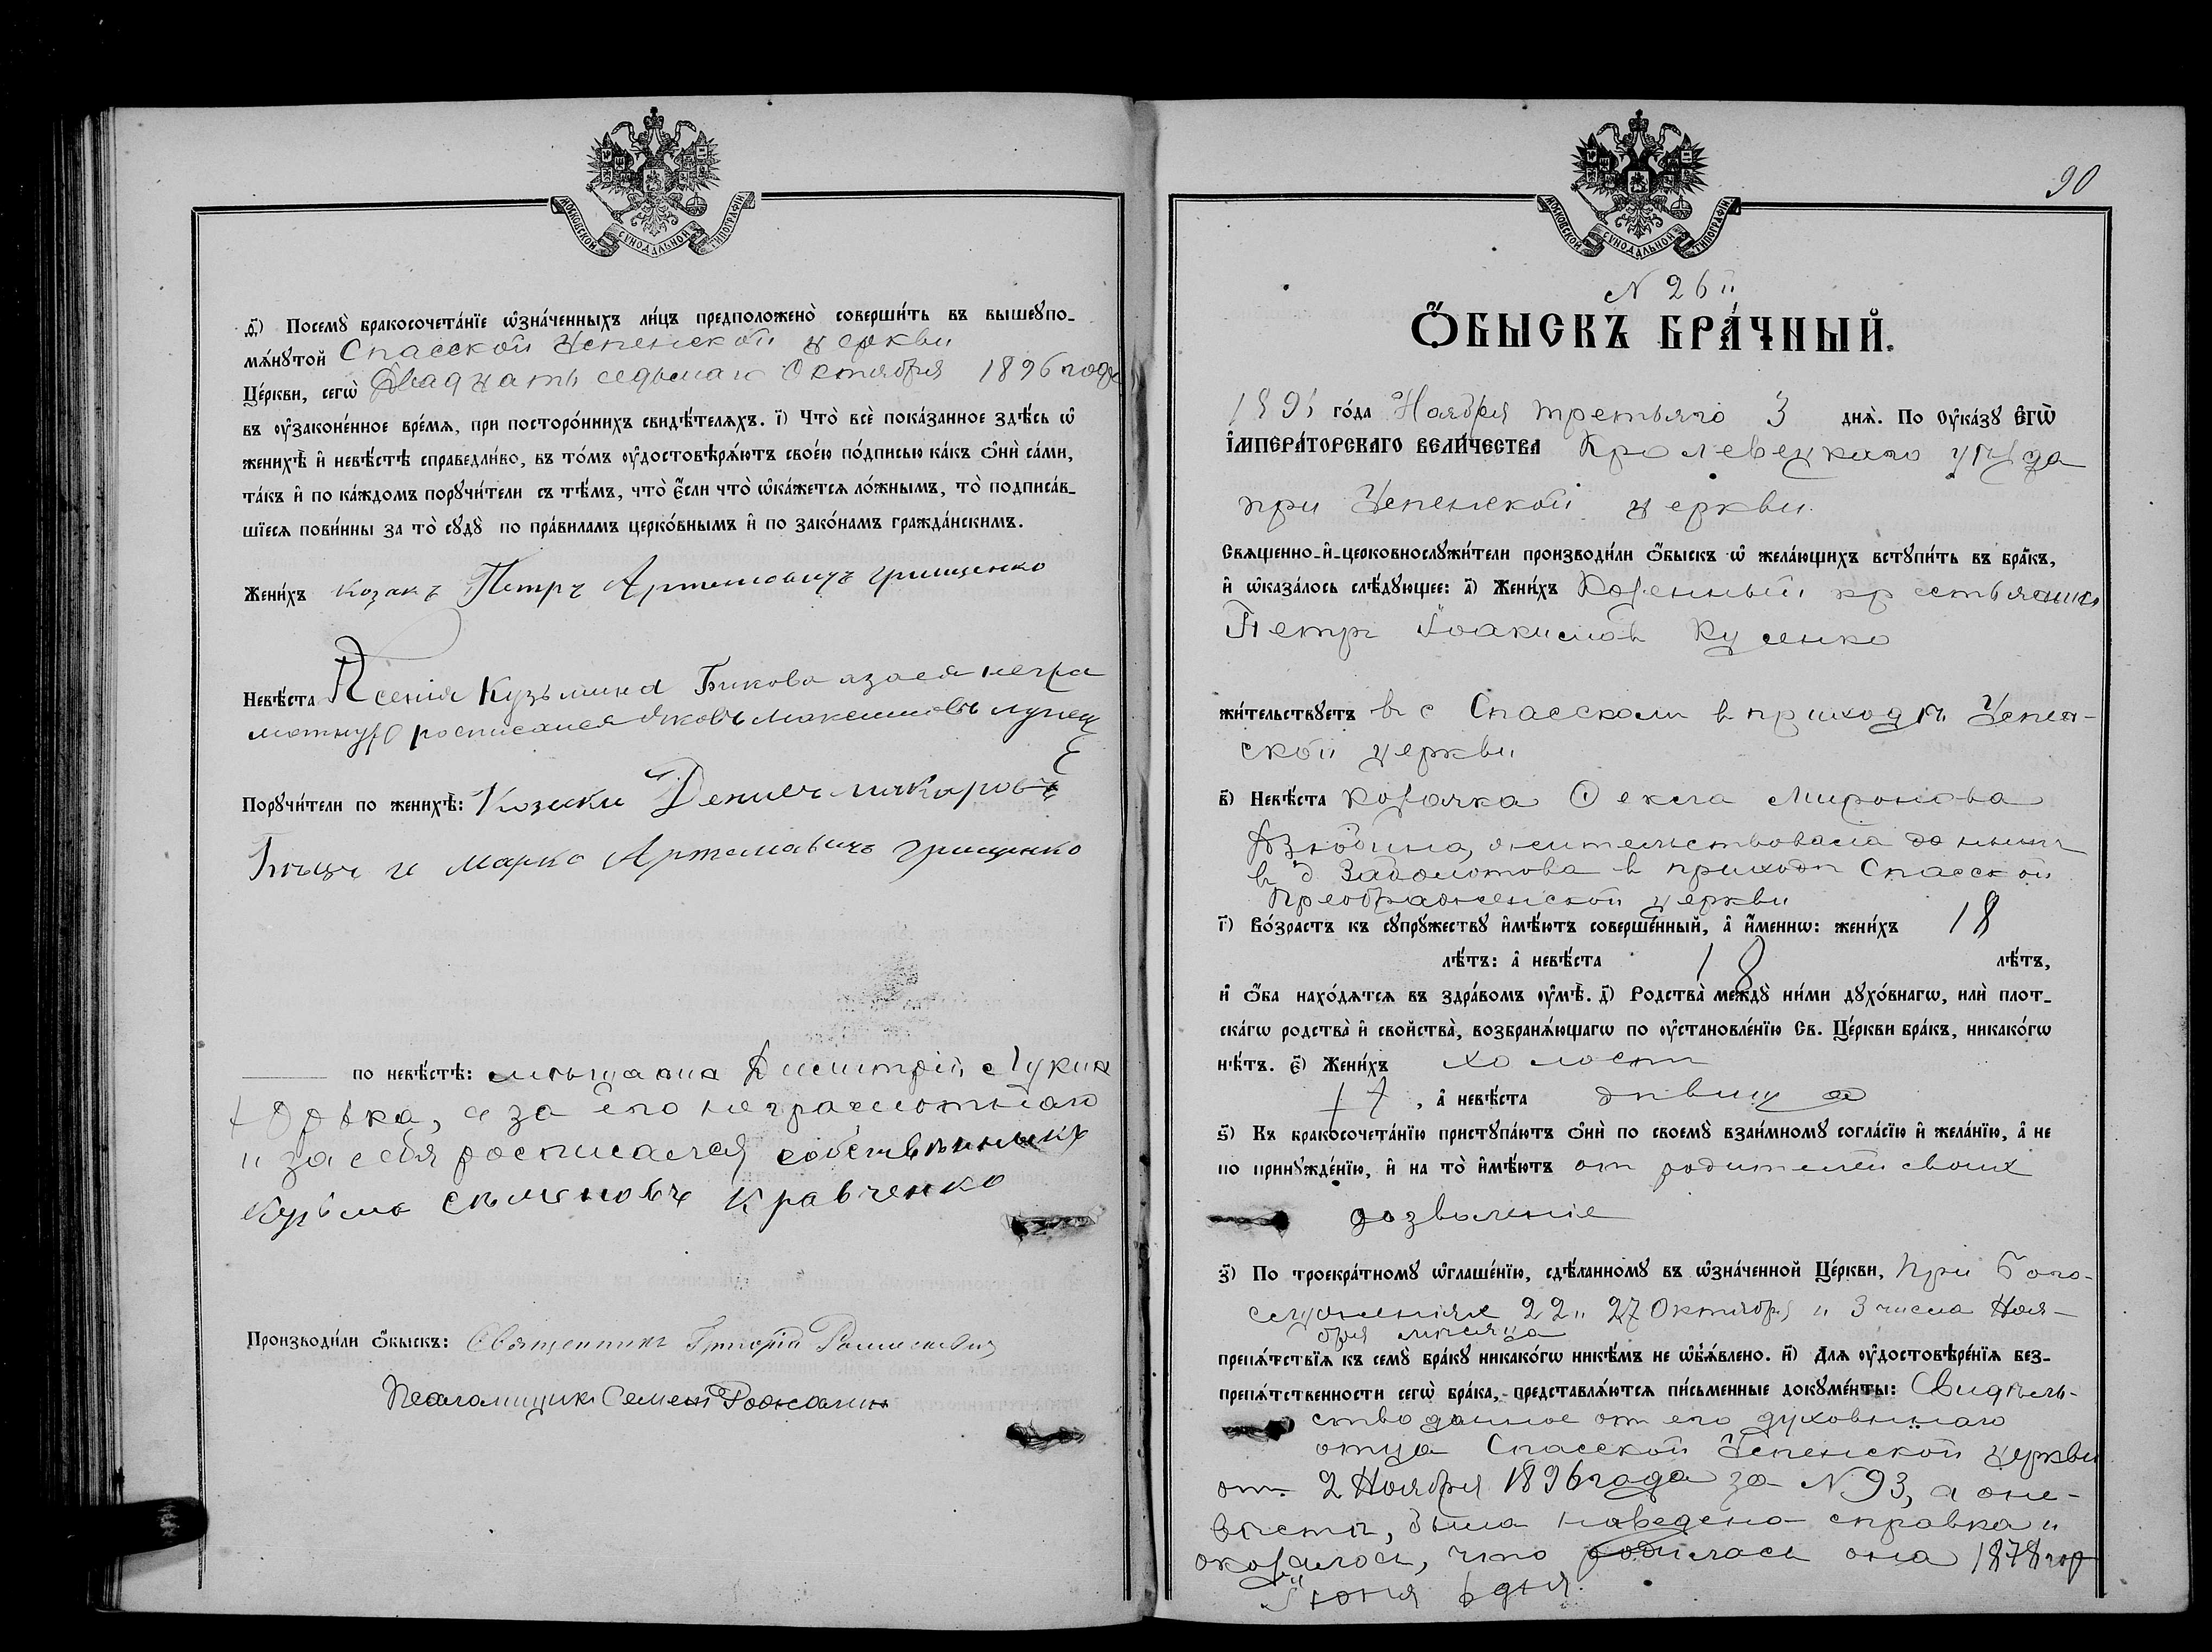 МОСКОВСКОЙ СУНОДАЛЬНОЙ ТИПОГРАФІИ
д҃) Посемꙋ̀ бракосочета́нїе ѡ҆зна́ченныхъ ли́цъ предположено̀ соверши́ть въ вышеꙋпо-
мѧ́нꙋтой Спасской Успенской церкви
Це́ркви, сегѡ̀ Двадцать седьмаго Октября 1896 года
въ ѹ҆законе́нное вре́мѧ, при посторо́ннихъ свидѣ́телѧхъ. і҃) Что̀ всѐ пока́занное здѣ́сь ѡ҆
женихѣ̀ и҆ невѣ́стѣ справедли́во, въ то́мъ ѹ҆достовѣрѧ́ютъ свое́ю по́дписью ка́къ ѻ҆нѝ са́ми,
та́къ и҆ по ка́ждомъ порꙋчи́тели съ тѣ́мъ, что̀ є҆́сли что̀ ѡ҆ка́жетсѧ ло́жнымъ, то̀ подписа́в-
шїесѧ пови́нны за то̀ сꙋдꙋ̀ по пра́виламъ церко́внымъ и҆ по зако́намъ гражда́нскимъ.
Жени́хъ козакъ Петръ Артемовичъ Грищенко
Невѣ́ста Ксенія Кузьмина Бикова азаея негра
мотную росписался Яковъ Максимовъ
Порꙋчи́тели по женихѣ̀: Козаки Денисъ Макаровъ
и Марко Артемавичъ Грищенко
по невѣ́стѣ: мѣщанин Димитрій Лукин
Юрька, а за его неграмотнаго
и за себя росписался собственникъ
Кузьма Семеновъ Кравченко
Производи́ли ѻ҆́быскъ: Священникъ Григорій
Псаломщик Семен
МОСКОВСКОЙ СУНОДАЛЬНОЙ ТИПОГРАФІИ
90
N 26й
Ѻ҆́БЫСКЪ БРА́ЧНЫЙ.
го́да Ноября третьяго 3 днѧ̀. По ѹ҆ка́зꙋ Є҆ГѠ̀
І҆МПЕРА́ТОРСКАГО ВЕЛИ́ЧЕСТВА Кролевецкаго уѣзда
при Успенской церкви
Свѧщенно-и҆-церковнослꙋжи́тели производи́ли ѻ҆́быскъ ѡ҆ жела́ющихъ встꙋпи́ть въ бра́къ,
и҆ ѡ҆каза́лось слѣ́дꙋющее: а҃) Жени́хъ Козенный крестьянинъ
Петръ Іоакимовъ Куценко
жи́тельствꙋетъ в с Спасском в приходѣ Успен-
ской церкви
в҃) Невѣ́ста Козачка Ѳекла Миронова
жительствовала до нынѣ
в д Заболотова в приходѣ Спасской
Преображенской церкви
г҃) Во́зрастъ къ сꙋпрꙋ́жествꙋ и҆мѣ́ютъ соверше́нный, а҆ и҆́меннѡ: жени́хъ 18
лѣ́тъ: а҆ невѣ́ста 18 лѣ́тъ,
и҆ ѻ҆́ба нахо́дѧтсѧ въ здра́вомъ ѹ҆мѣ̀. д҃) Родства̀ междꙋ̀ ни́ми дꙋхо́внагѡ, и҆лѝ плот-
ска́гѡ родства̀ и҆ свойства̀, возбранѧ́ющагѡ по ѹ҆становле́нїю Св. Це́ркви бра́къ, никако́гѡ
нѣ́тъ. є҃) Жени́хъ холост
, а҆ невѣ́ста дѣвица
ѕ҃) Къ бракосочета́нїю пристꙋпа́ютъ ѻ҆нѝ по своемꙋ̀ взаи́мномꙋ согла́сїю и҆ жела́нїю, а҆ не
по принꙋжде́нїю, и҆ на то̀ и҆мѣ́ютъ от родителей своих
дозволеніе
з҃) По троекра́тномꙋ ѡ҆глаше́нїю, сдѣ́ланномꙋ въ ѡ҆зна́ченной Це́ркви, при Бого-
служеніях 22 и 27 Октября и 3 числа Ноя-
бря месяца
препѧ́тствїѧ къ семꙋ̀ бра́кꙋ никако́гѡ никѣ́мъ не ѡ҆б̾ѧ́влено. и҃) Длѧ ѹ҆достовѣре́нїѧ без-
препѧ́тственности сегѡ̀ бра́ка, представлѧ́ютсѧ пи́сьменные докꙋме́нты: Свидѣтель-
ство данное от его духовнаго
отца Спасской Успенской церкви
от 2 Ноября 1896 года за N 93, а о не-
вѣстѣ, была наведена справка и
оказалось, что родилась она 1878 год
Іюня 6 дня.